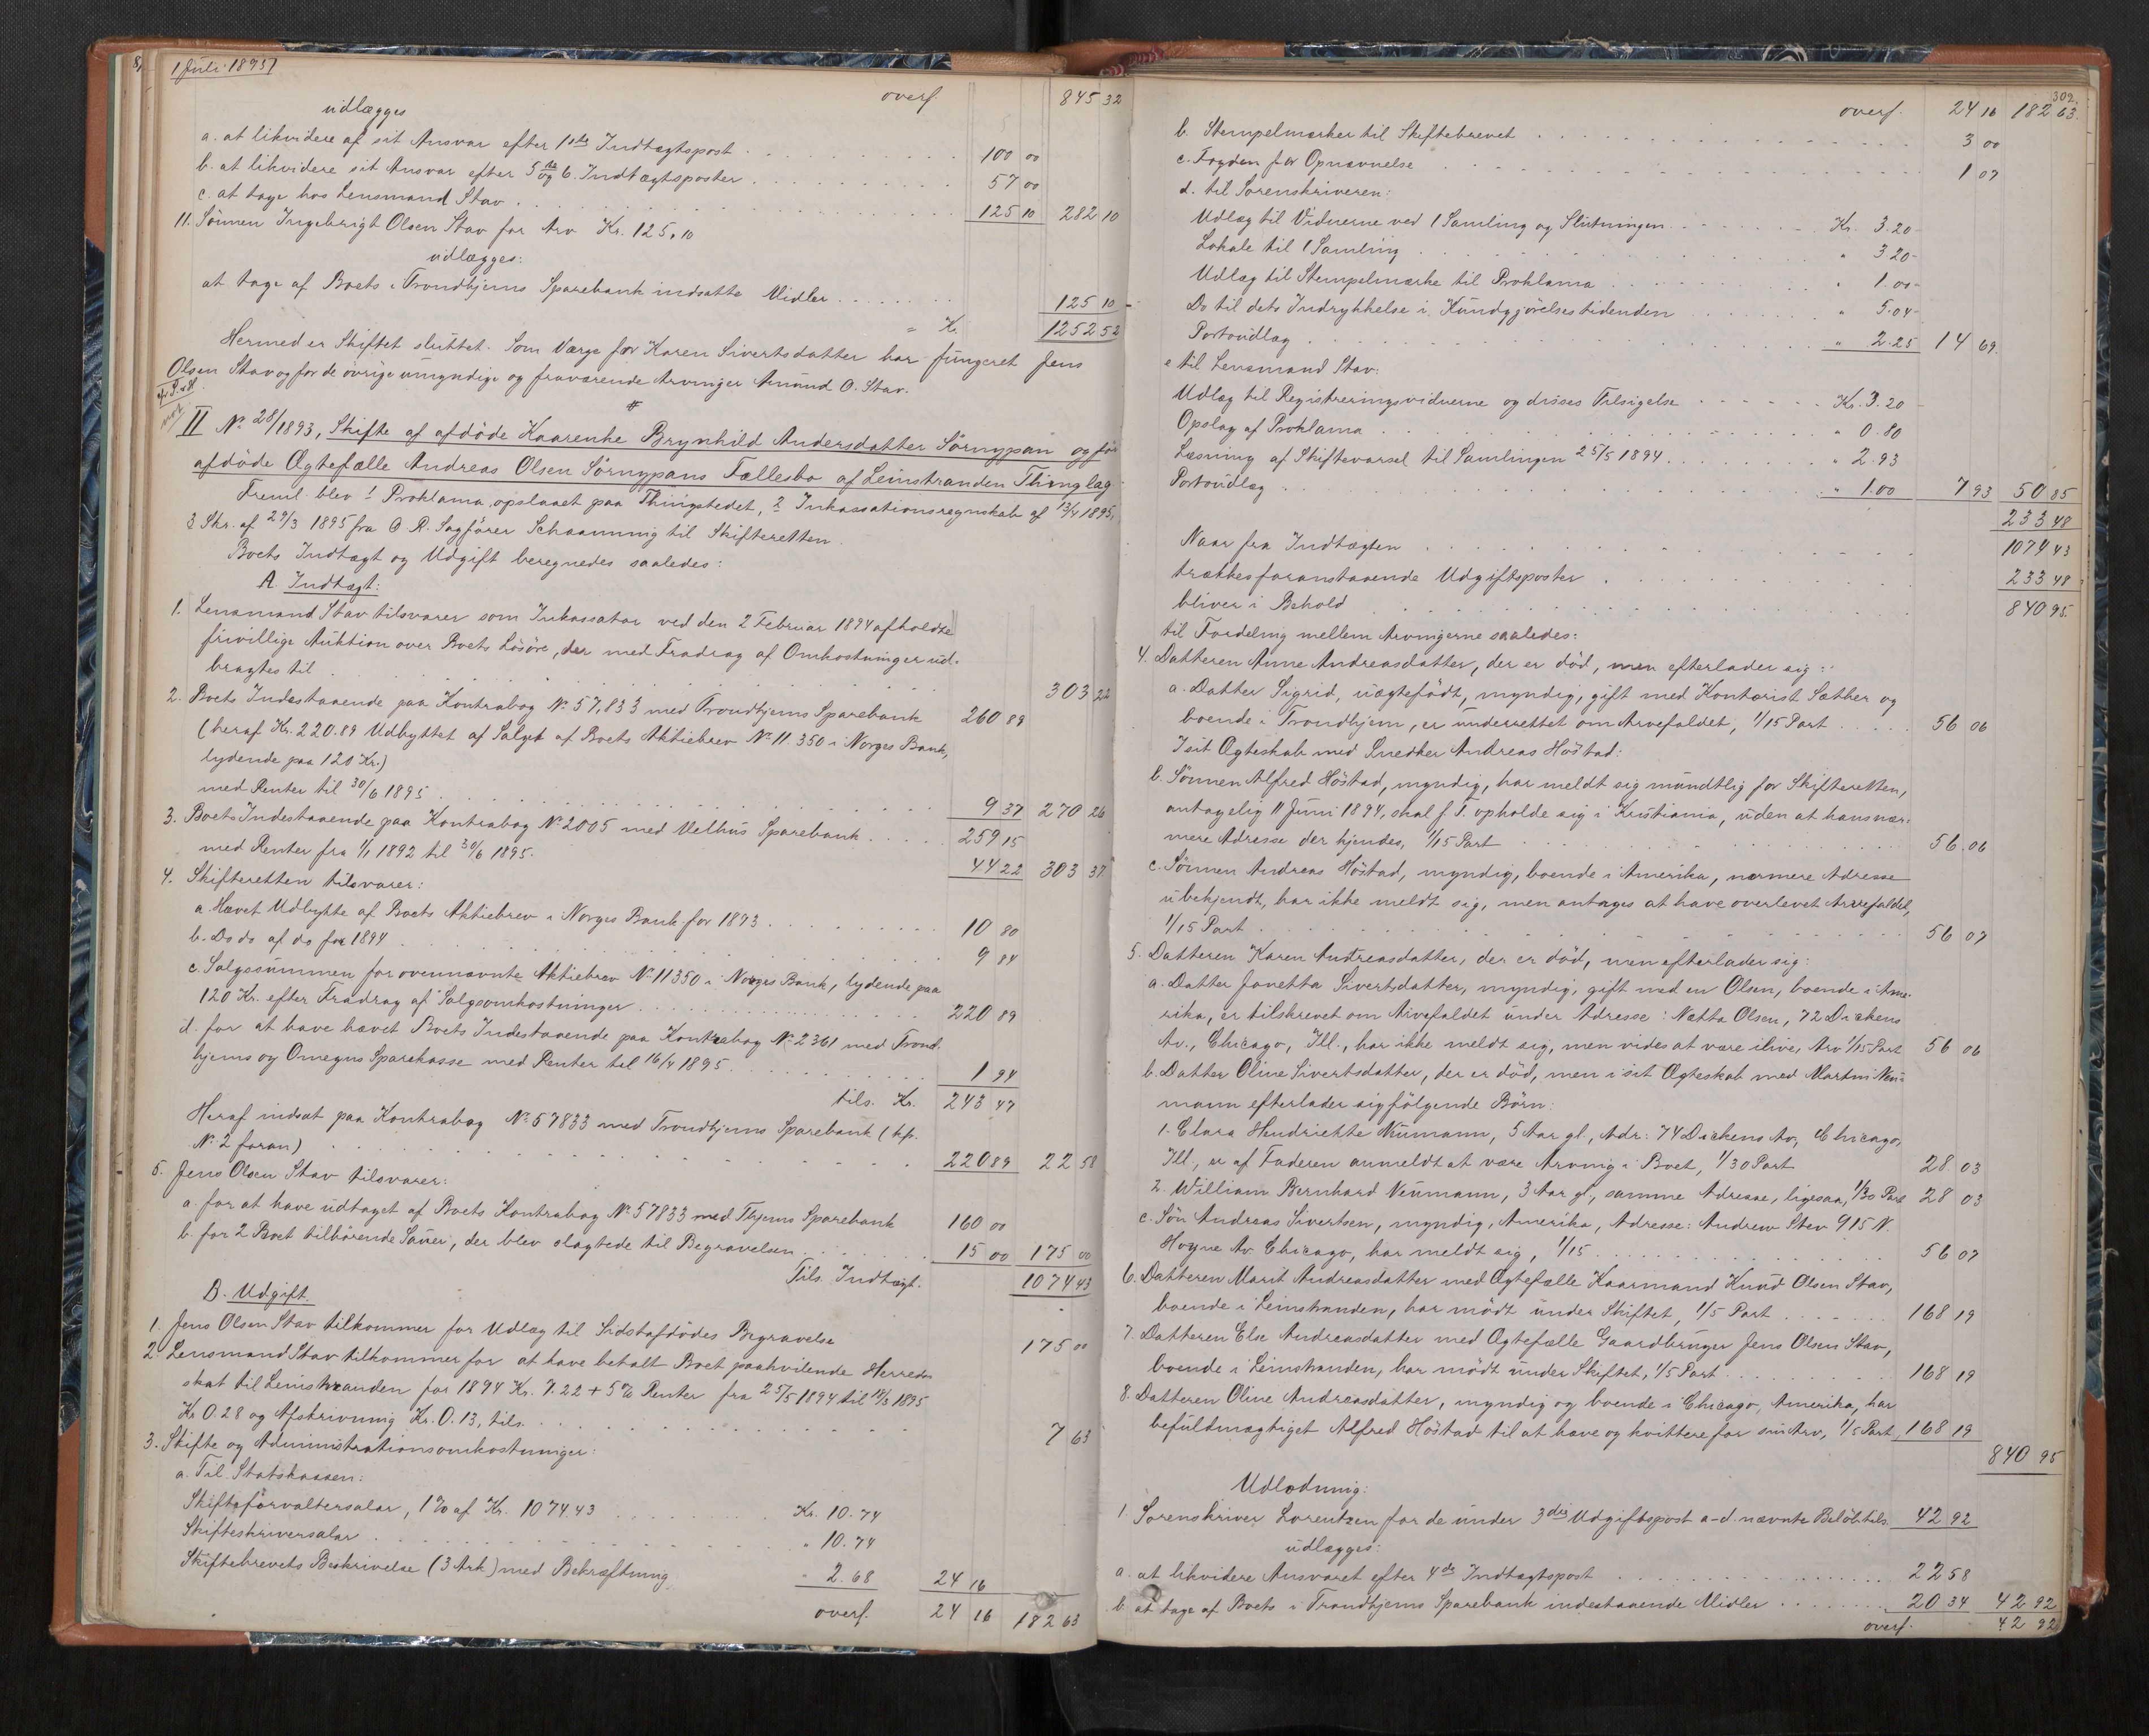 1 Juli 1895
overf. 845 32
udlægges
a. at likvidere af sit Ansvar efter 1ste Indtægtspost . . . 100 00
b. at likvidere sit Ansvar efter 5te og 6. Indtægtsposter . . . 57 00
c. at tage hos Lensmand Stav . . . 125 10 282 10
11. Sönnen Ingebrigt Olsen Stav for Arv Kr. 125,10
udlægges:
at tage af Boets i Trondhjems Sparebank indsatte Midler . . . 125 10
= Kr. 1252 52
Hermed er Skiftet sluttet. Som Værge for Karen Sivertsdatter har fungeret Jens
Olsen Stav og for de övrige umyndige og fraværende Arvinger Amund O. Stav.
II No 28/1893, Skifte af afdöde Kaarenke Brynhild Andersdatter Sörnypan og för
afdöde Ægtefælle Andreas Olsen Sörnypans Fællesbo af Leinstranden Thinglag
Freml. blev 1 Proklama, opslaaet paa Thingstedet, 2 Inkassationsregnskab af 13/4 1895,
3 Skr. af 29/3 1895 fra O. R. Sagförer Schaanning til Skifteretten.
Boets Indtægt og Udgift beregnedes saaledes:
A. Indtægt:
1. Lensmand Stav tilsvarer som Inkassator ved den 2 Februar 1894 afholdte
frivillige Auktion over Boets Lösöre, der med Fradrag af Omkostninger ud-
bragtes til . . . 303 22
2. Boets Indestaaende paa Kontrabog No 57,833 med Trondhjems Sparebank 260 89
(heraf Kr. 220.89 Udbyttet af Salget af Boets Aktiebrev No 11350 i Norges Bank,
lydende paa 120 Kr.)
med Renter til 30/6 1895 . . . 9 37 270 26
3. Boets Indestaaende paa Kontrabog No 2005 med Melhus Sparebank . . . 259 15
med Renter fra 1/1 1892 til 30/6 1895. 44 22 303 37
4. Skifteretten tilsvarer:
a. Hævet Udbytte af Boets Aktiebrev i Norges Bank for 1893 . . . 10 80
b. Do do af do for 1894 . . . 9 84
c. Salgssummen for ovennævnte Aktiebrev No 11350 i Norges Bank, lydende paa
120 Kr. efter Fradrag af Salgsomkostninger . . . 220 89
d. for at have hævet Boets Indestaaende paa Kontrabog No 2361 med Trond-
hjems og Omegns Sparekasse med Renter til 16/4 1895 . . . 1 94
tils. Kr. 243 47
Heraf indsat paa Kontrabog No 57833 med Trondhjems Sparebank (kfr.
No 2 foran) . . . 220 89 22 58
5. Jens Olsen Stav tilsvarer:
a. for at have udtaget af Boets Kontrabog No 57833 med Thjems Sparebank 160 00
b. for 2 Boet tilhörende Sauer, der blev slagtede til Begravelsen . . . 15 00 175 00
Tils. Indtægt. 1074 43
B. Udgift.
1. Jens Olsen Stav tilkommer for Udlæg til Sidstafdödes Begravelse 175 00
2. Lensmand Stav tilkommer for at have betalt Boet paahvilende Herreds-
skat til Leinstranden for 1894 Kr. 7.22 + 5% Renter fra 25/5 1894 til 12/3 1895
Kr 0.28 og Afskrivning Kr. 0.13, tils. . . . 7 63
3. Skifte og Administrationsomkostninger:
a. Til Statskassen:
Skifteforvaltersalær, 1% af Kr. 1074.43 . . . Kr. 10.74
Skifteskriversalær . . . " 10.74
Skiftebrevets Beskrivelse (3 Ark) med Bekræftning " 2.68 24 16
overf. 24 16 182 63
302.
overf. 24 16 182 63.
b. Stempelmærker til Skiftebrevet . . . 3 00
c. Fogden for Opnævnelse . . . 1 07
d. til Sorenskriveren:
Udlæg til Vidnerne ved 1 Samling og Slutningen . . . Kr. 3.20
Lokale til 1 Samling . . . " 3.20
Udlæg til Stempelmærke til Proklama . . . " 1.00
Do til dets Indrykkelse i Kundgjörelsestidenden . . . " 5.04
Portoudlæg . . . " 2.25 14 69.
e til Lensmand Stav:
Udlæg til Registreringsvidnerne og disses Tilsigelse . . . Kr. 3.20
Opslag af Proklama . . . " 0.80
Læsning af Skiftevarsel til Samlingen 25/5 1894 . . . " 2.93
Portoudlæg . . . " 1.00 7 93 50 85
233 48
Naar fra Indtægten . . . 1074 43
trækkes foranstaaende Udgiftsposter . . . 233 48
bliver i Behold . . . 840 95.
til Fordeling mellem Arvingerne saaledes:
4. Datteren Anne Andreasdatter, der er död, men efterlader sig:
a. Datter Sigrid, uægtefödt, myndig, gift med Kontorist Sæther og
boende i Trondhjem, er underrettet om Arvefaldet, 1/15 Part . . . 56 06
I sit Ægteskab med Snedker Andreas Höstad:
b. Sönnen Alfred Höstad, myndig, har meldt sig mundtlig for Skifteretten,
antagelig 11 Juni 1894, skal f. T. opholde sig i Kristiania, uden at hans nær-
mere Adresse der kjendes, 1/15 Part . . . 56.06
c. Sönnen Andreas Höstad, myndig, boende i Amerika, nærmere Adresse
ubekjendt, har ikke meldt sig, men antages at have overlevet Arvefaldet,
1/15 Part . . . 56 07
5. Datteren Karen Andreasdatter, der er död, men efterlader sig:
a. Datter Jonetta Sivertsdatter, myndig, gift med en Olsen, boende i Ame-
rika, er tilskrevet om Arvefaldet under Adresse: Netta Olsen, 72 Dickens
Av., Chicago, Ill., har ikke meldt sig, men vides at være ilive, Arv 1/15 Part 56 06
b. Datter Oline Sivertsdatter, der er död, men i sit Ægteskab med Martin Neu-
mann efterlader sig fölgende Börn:
1. Clara Hendriette Neumann, 5 Aar gl., Adr: 74 Dickens Av, Chicago,
Ill., er af Faderen anmeldt at være Arving i Boet, 1/30 Part 28.03
2. William Bernhard Neumann, 3 Aar gl., samme Adresse, ligesaa, 1/30 Part 28 03
c. Sön Andreas Sivertsen, myndig, Amerika, Adresse: Andrew Stev 915 N.
Hoyne Av. Chicago, har meldt sig, 1/15 . . . 56 07
6. Datteren Marit Andreasdatter med Ægtefælle Kaarmand Knud Olsen Stav,
boende i Leinstranden, har mödt under Skiftet, 1/5 Part . . . 168 19
7. Datteren Else Andreasdatter med Ægtefælle Gaardbruger Jens Olsen Stav,
boende i Leinstranden, har mödt under Skiftet, 1/5 Part . . . 168 19
8. Datteren Oline Andreasdatter, myndig og boende i Chicago, Amerika, har
befuldmægtiget Alfred Höstad til at hæve og kvittere for sin Arv, 1/5 Part 168 19
840 95
Udlodning:
1. Sorenskriver Lorentzen for de under 3die Udgiftspost a-d nævnte Belöb tils. 42 92
udlægges:
a. at likvidere Ansvaret efter 4de Indtægtspost . . . 22 58
b. at tage af Boets i Trondhjems Sparebank indestaaende Midler . . . 20 34 42 92
overf. 42 92